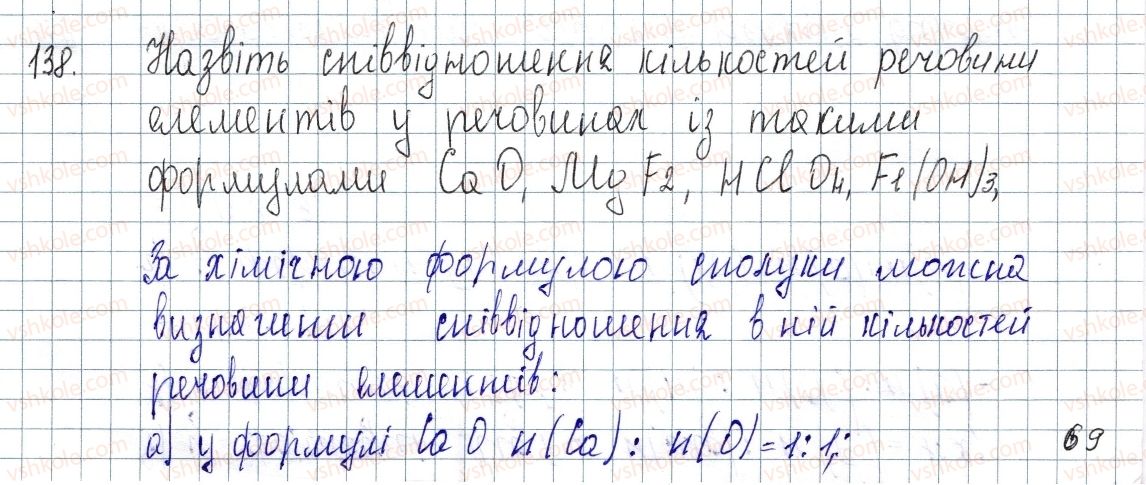 138. Назвіть співвідношення кількостей речовини
елементів у речовинах із такими
формулами CaO, MgF2, HClO4, Fe(OH)3,
За хімічною формулою сполуки можна
визначити співвідношення в ній кількостей
речовини елементів:
а) у формулі CaO n(Ca) : n(O) = 1:1;
69